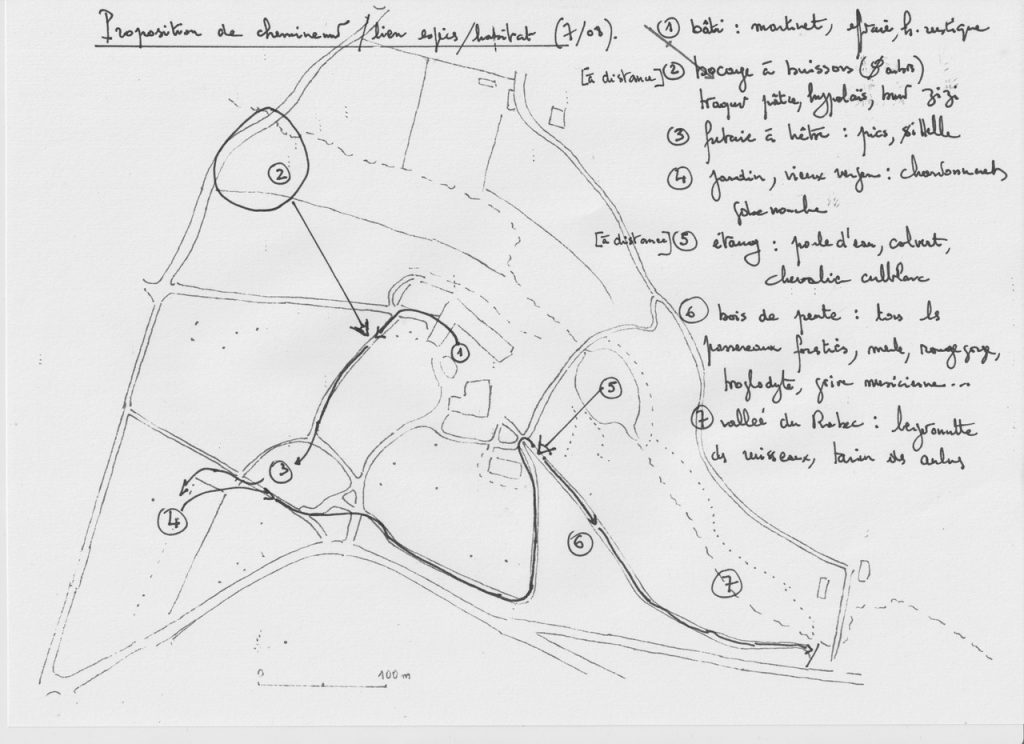 Proposition de cheminemt / lien espices/habitat (7/08).
① bâti : martinet, effraie, h. rustique
[à distance] ② bocage à buissons (Ø arbres)
traquet pâtre, hypolaïs, bruant zizi
③ futaie à hêtre : pics, sittelle
④ jardin, vieux verger : chardonnerets
gobe mouche
[à distance] ⑤ étang : poule d'eau, colvert,
chevalier culblanc
⑥ bois de pente : tous les
passereaux forestiers, merle, rouge gorge,
troglodyte, grive musicienne...
⑦ vallée du Robec : bergeronnette
des ruisseaux, tarin des aulnes
②
①
⑤
③
4
⑥
⑦
0
100 m